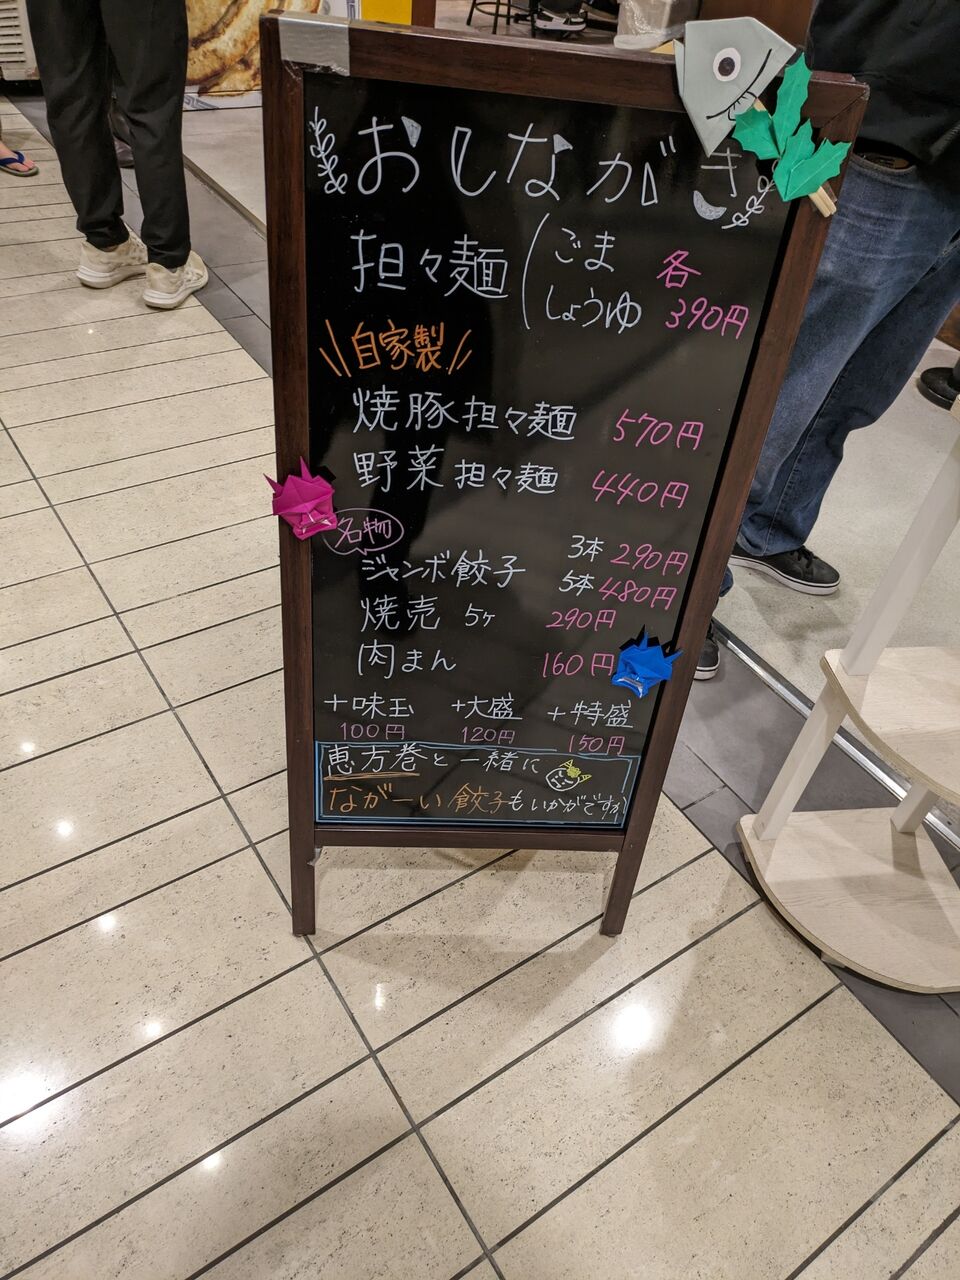 おしながき
担々麺 ごま しょうゆ 各390円
自家製
焼豚担々麺 570円
野菜担々麺 440円
名物
ジャンボ餃子 3本 290円
5本 480円
焼売 5ヶ 290円
肉まん 160円
+味玉 +大盛 +特盛
100円 120円 150円
恵方巻と一緒に
ながーい餃子もいかがですか